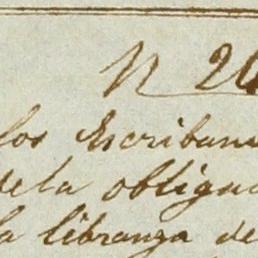 N 20
los Escribano
dela obliga
la libranza de